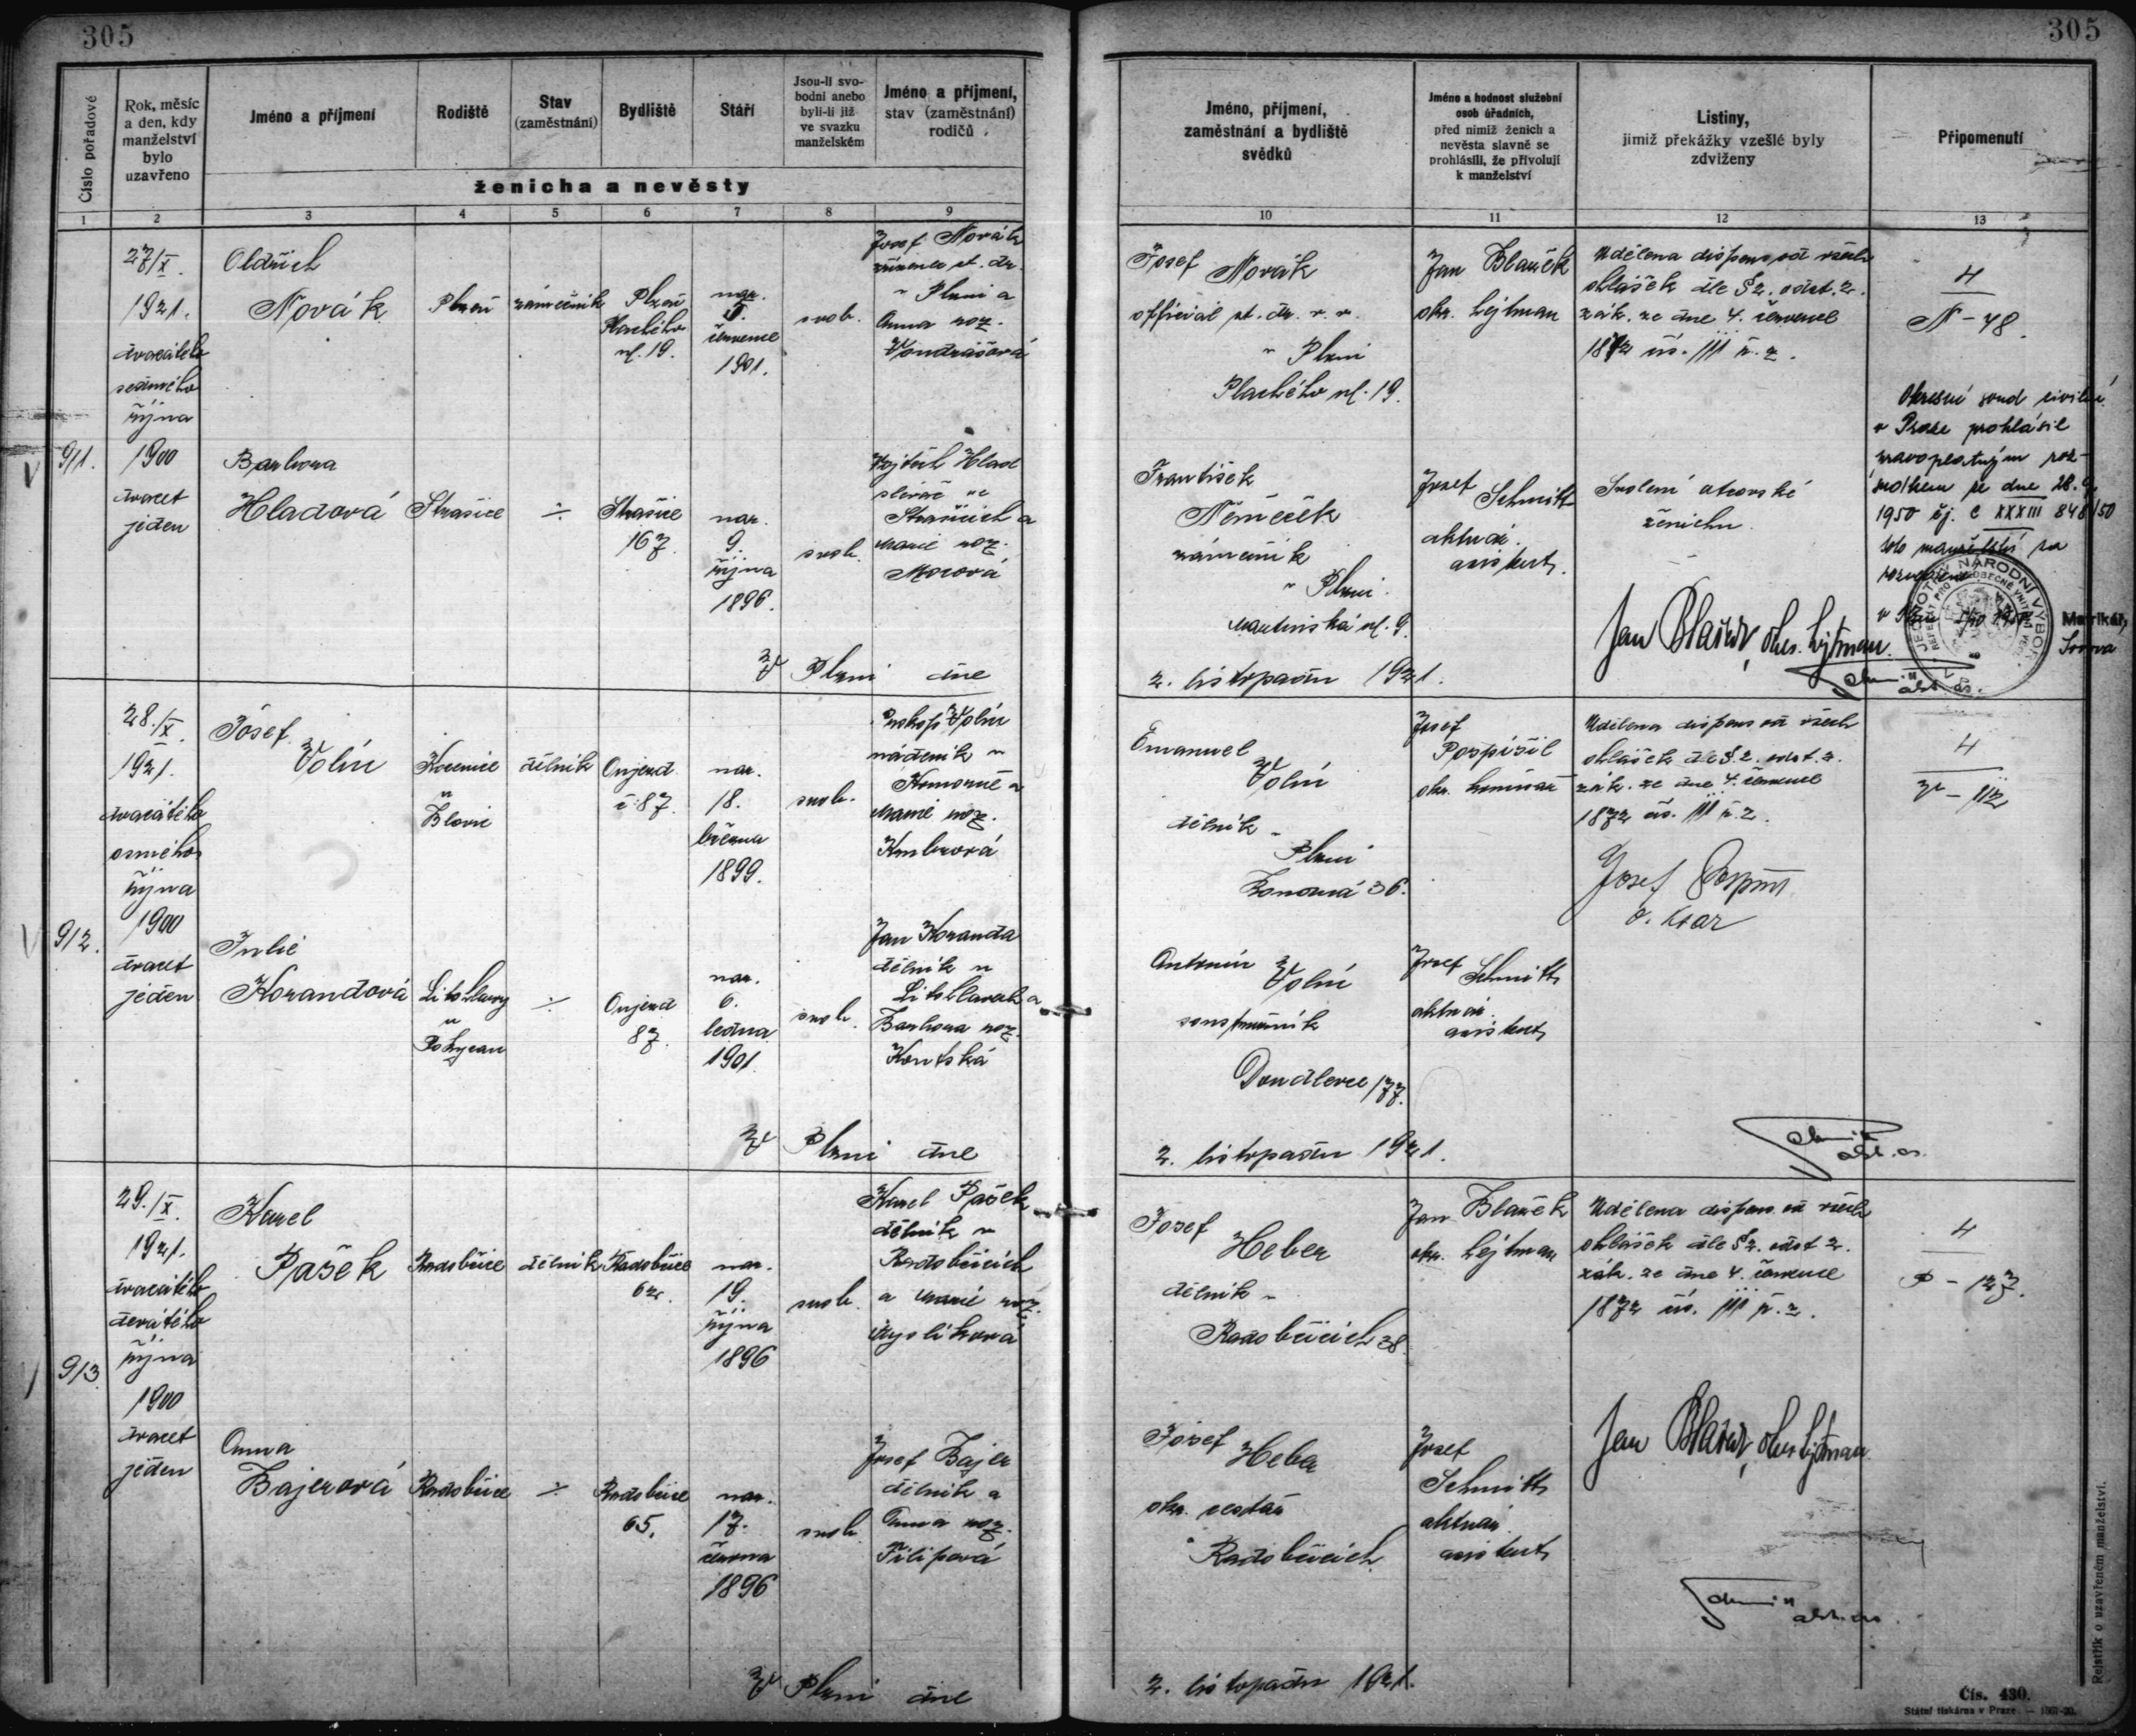 305
305
Číslo pořadové
Rok, měsíc
a den, kdy
manželství
bylo
uzavřeno
Jméno a příjmení
Rodiště
Stav
(zaměstnání)
Bydliště
Stáří
Jsou-li svo-
bodni anebo
byli-li již
ve svazku
manželském
Jméno a příjmení,
stav (zaměstnání)
rodičů
ženicha a nevěsty
1 2 3 4 5 6 7 8 9
Jméno, příjmení,
zaměstnání a bydliště
svědků
Jméno a hodnost služební
osob úřadních,
před nimiž ženich a
nevěsta slavně se
prohlásili, že přivolují
k manželství
Listiny,
jimiž překážky vzešlé byly
zdviženy
Připomenutí
10 11 12 13
911.
27/X.
1921.
dvacátého
sedmého
října
1900
dvacet
jeden
Oldřich
Novák
Plzeň
zámečník
Plzeň
Plachého
ul. 19.
nar.
5.
července
1901.
svob.
Josef Novák
v Plzni a
Anna roz.
Vondrášová
Barbora
Hladová
Strašice
÷
Strašice
167.
nar.
9.
října
1896.
svob.
Vojtěch Hlad
slévač ve
Strašicích a
Marie roz.
Josef
Novák
official st. dr. v. v.
v Plzni
Plachého ul. 19.
Jan Blažek
okr. hejtman
Udělena dispens od všech
ohlášek dle § 2. odst. 2.
zák. ze dne 4. července
1872 čís. 111 ř. z.
4
N - 48.
František
Němeček
zámečník
v Plzni
Martinská ul. 9.
Josef
Schmitt
aktuár.
asistent.
Svolení otcovské
ženichu.
Okresní soud civilní
v Praze prohlásil
pravoplatným roz-
sudkem ze dne 28. 9.
1950 čj. C XXXIII 848/50
toto manželství za
rozvedené
JEDNOTNÝ NÁRODNÍ VÝBOR
Matrikář,
Jan Blažek, okr. hejtman.
V Plzni dne
2. listopadu 1921.
912.
28./X.
1921.
dvacátého
osmého
října
1900
dvacet
jeden
Josef
Volín
u
Blovic
dělník
Onjezd
č. 87.
nar.
18.
března
1899.
svob.
Prokop Volín
nádeník v
Komorně a
Marie roz.
Julie
Korandová
Litohlavy
u
Rokycan
÷
Onjezd
87.
nar.
6.
ledna
1901
svob.
Jan Koranda
dělník v
Litohlavech a
Barbora roz.
Emanuel
Volín
dělník v
Plzni
Josef
Pospíšil
okr. komisař
Udělena dispens od všech
ohlášek dle § 2. odst. 2.
zák. ze dne 4. července
1872 čís. 111 ř. z.
4
V - 112
Josef Pospíšil
Antonín
Volín
soustružník
Doudlevce 177.
Josef
Schmitt
aktuár.
asistent
V Plzni dne
2. listopadu 1921.
913
29./X.
1921.
dvacátého
devátého
října
1900
dvacet
jeden
Karel
Pašek
Radobčice
dělník
Radobčice
62.
nar.
19.
října
1896
svob.
Karel Pašek
dělník v
Radobčicích
a Marie roz.
Myslíková
Anna
Bajerová
Radobčice
÷
Radobčice
65.
nar.
17.
června
1896
svob.
Josef Bajer
dělník a
Anna roz.
Filipová
Josef
Heber
dělník v
Radobčicích 38.
Jan Blažek
okr. hejtman
Udělena dispens od všech
ohlášek dle § 2. odst. 2.
zák. ze dne 4. července
1872 čís. 111 ř. z.
4
P - 127.
Josef
Heba
okr. cestář
v Radobčicích
Josef
Schmitt
aktuár.
asistent
Jan Blažek, okr. hejtman
V Plzni dne
2. listopadu 1921.
Rejstřík o uzavřeném manželství.
Čís. 430.
Státní tiskárna v Praze.